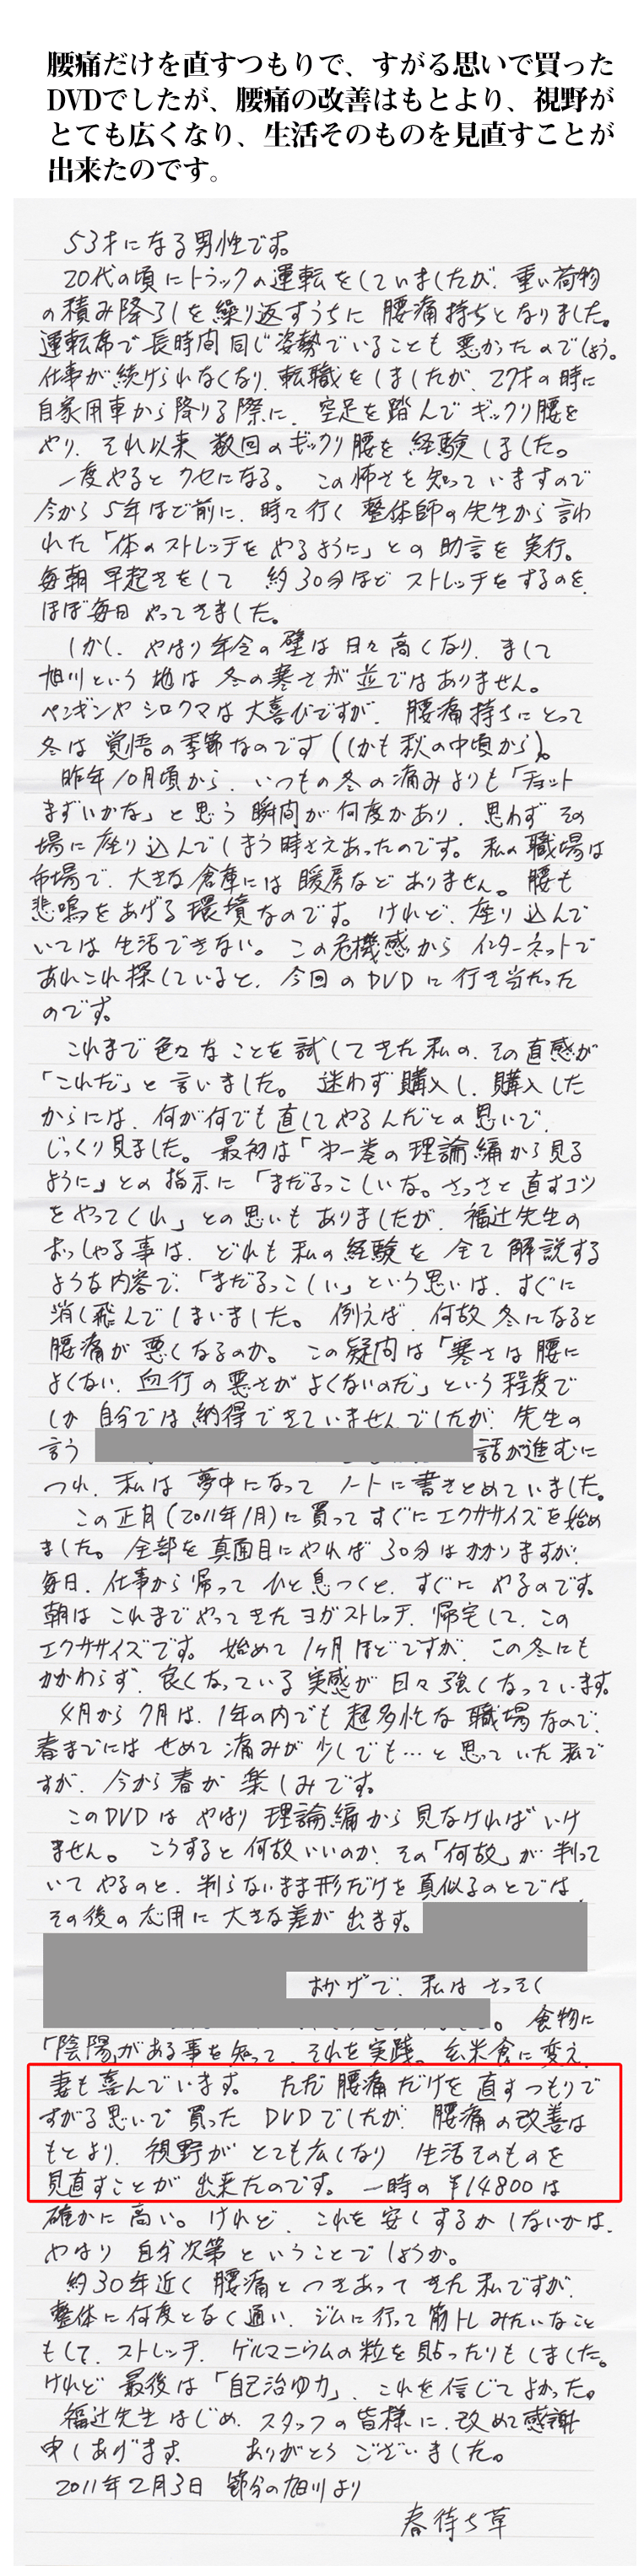 腰痛だけを直すつもりで、すがる思いで買った
DVDでしたが、腰痛の改善はもとより、視野が
とても広くなり、生活そのものを見直すことが
出来たのです。
53才になる男性です。
20代の頃にトラックの運転をしていましたが、重い荷物
の積み降ろしを繰り返すうちに 腰痛持ちとなりました。
運転席で長時間同じ姿勢でいることも悪かったのでしょう。
仕事が続けられなくなり、転職をしましたが、27才の時に
自家用車から降りる際に、空足を踏んで ギックリ腰を
やり、それ以来 数回のギックリ腰を 経験しました。
一度やると クセになる。この怖さを知っていますので
今から5年ほど前に、時々行く 整体師の先生から言わ
れた「体のストレッチをやるように」との助言を実行。
毎朝 早起きをして 約30分ほど ストレッチをするのを、
ほぼ毎日 やってきました。
しかし、やはり年令の壁は日々高くなり、まして
旭川という地は 冬の寒さが並ではありません。
ペンギンやシロクマは大喜びですが、腰痛持ちにとって
冬は 覚悟の季節なのです(しかも秋の中頃から)。
昨年10月頃から、いつもの冬の痛みよりも「チョット
まずいかな」と思う瞬間が何度かあり、思わずその
場に座り込んでしまう時さえあったのです。私の職場は
市場で、大きな倉庫には暖房などありません。腰も
悲鳴をあげる環境なのです。けれど、座り込んで
いては生活できない。この危機感から インターネットで
あれこれ探していると、今回のDVDに行き当たった
のです。
これまで色々なことを試してきた私の、その直感が
「これだ」と言いました。迷わず購入し、購入した
からには、何が何でも直してやるんだとの思いで、
じっくり見ました。最初は「第一巻の理論編から見る
ように」との指示に「まだるっこしいな。さっさと直すコツ
をやってくれ」との思いもありましたが、福辻先生の
おっしゃる事は、どれも私の経験を全て解説する
ような内容で、「まだるっこしい」という思いは、すぐに
消し飛んでしまいました。例えば、何故冬になると
腰痛が悪くなるのか。この疑問は「寒さは腰に
よくない、血行の悪さがよくないのだ」という程度で
しか 自分では納得できていませんでしたが、先生の
言う 話が進むに
つれ、私は夢中になって ノートに書きとめていました。
この正月(2011年1月)に買ってすぐにエクササイズを始め
ました。全部を真面目にやれば30分はかかりますが、
毎日、仕事から帰って ひと息つくと、すぐにやるのです。
朝はこれまでやってきたヨガストレッチ、帰宅して、この
エクササイズです。始めて1ヶ月ほどですが、この冬にも
かかわらず、良くなっている実感が日々強くなっています。
4月から7月は、1年の内でも超多忙な職場なので、
春までにはせめて痛みが少しでも…と思っていた私で
すが、今から春が楽しみです。
このDVDは やはり理論編から見なければいけ
ません。こうすると何故いいのか、その「何故」が判って
いてやるのと、判らないまま形だけを真似るのとでは、
その後の応用に大きな差が出ます。
おかげで、私はさっそく
。食物に
「陰陽」がある事を知って、それを実践。玄米食に変え、
妻も喜んでいます。ただ腰痛だけを直すつもりで
すがる思いで買った DVDでしたが、腰痛の改善は
もとより、視野がとても広くなり 生活そのものを
見直すことが出来たのです。一時の¥14800は
確かに高い。けれど、これを安くするかしないかは、
やはり自分次第ということでしょうか。
約30年近く 腰痛とつきあってきた私ですが、
整体に何度となく通い、ジムに行って筋トレみたいなこと
もして、ストレッチ、ゲルマニウムの粒を貼ったりもしました。
けれど最後は「自己治ゆ力」、これを信じてよかった。
福辻先生はじめ、スタッフの皆様に、改めて感謝
申しあげます。ありがとうございました。
2011年2月3日 節分の旭川より
春待ち草